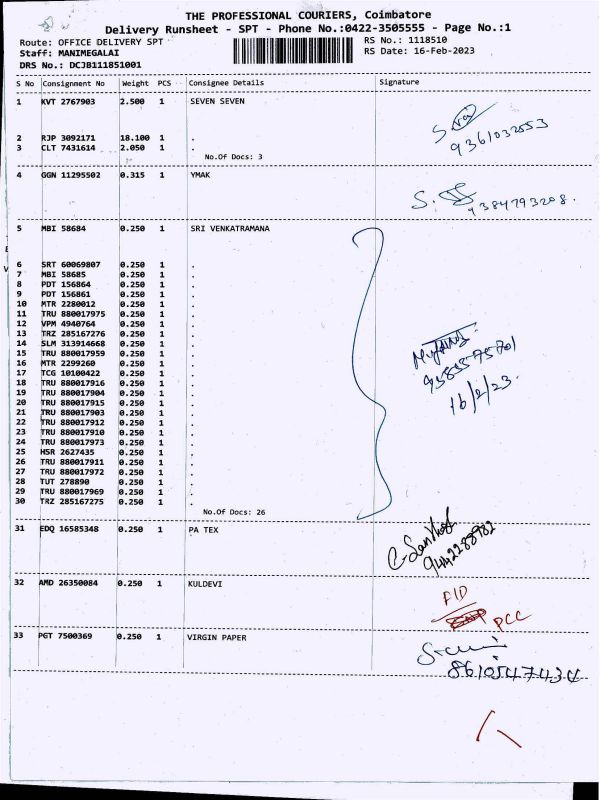 THE PROFESSIONAL COURIERS, Coimbatore
Delivery Runsheet - SPT - Phone No.:0422-3505555 - Page No.:1
Route: OFFICE DELIVERY SPT RS No.: 1118510
Staff: MANIMEGALAI RS Date: 16-Feb-2023
DRS No.: DCJB111851001
S No Consignment No Weight PCS Consignee Details Signature
1 KVT 2767903 2.500 1 SEVEN SEVEN
9361032553
2 RJP 3092171 18.100 1 .
3 CLT 7431614 2.050 1 .
No.Of Docs: 3
4 GGN 11295502 0.315 1 YMAK
9384793208.
5 MBI 58684 0.250 1 SRI VENKATRAMANA
6 SRT 60069807 0.250 1 .
7 MBI 58685 0.250 1 .
8 PDT 156864 0.250 1 .
9 PDT 156861 0.250 1 .
10 MTR 2280012 0.250 1 .
11 TRU 880017975 0.250 1 .
12 VPM 4940764 0.250 1 .
13 TRZ 285167276 0.250 1 .
14 SLM 313914668 0.250 1 .
15 TRU 880017959 0.250 1 .
16 MTR 2299260 0.250 1 .
17 TCG 10100422 0.250 1 .
18 TRU 880017916 0.250 1 .
19 TRU 880017904 0.250 1 .
20 TRU 880017915 0.250 1 .
21 TRU 880017903 0.250 1 .
22 TRU 880017912 0.250 1 .
23 TRU 880017910 0.250 1 .
24 TRU 880017973 0.250 1 .
25 HSR 2627435 0.250 1 .
26 TRU 880017911 0.250 1 .
27 TRU 880017972 0.250 1 .
28 TUT 278890 0.250 1 .
29 TRU 880017969 0.250 1 .
30 TRZ 285167275 0.250 1 .
16/2/23.
No.Of Docs: 26
31 EDQ 16585348 0.250 1 PA TEX
9442288982
32 AMD 26350084 0.250 1 KULDEVI
PCC
33 PGT 7500369 0.250 1 VIRGIN PAPER
8610547434